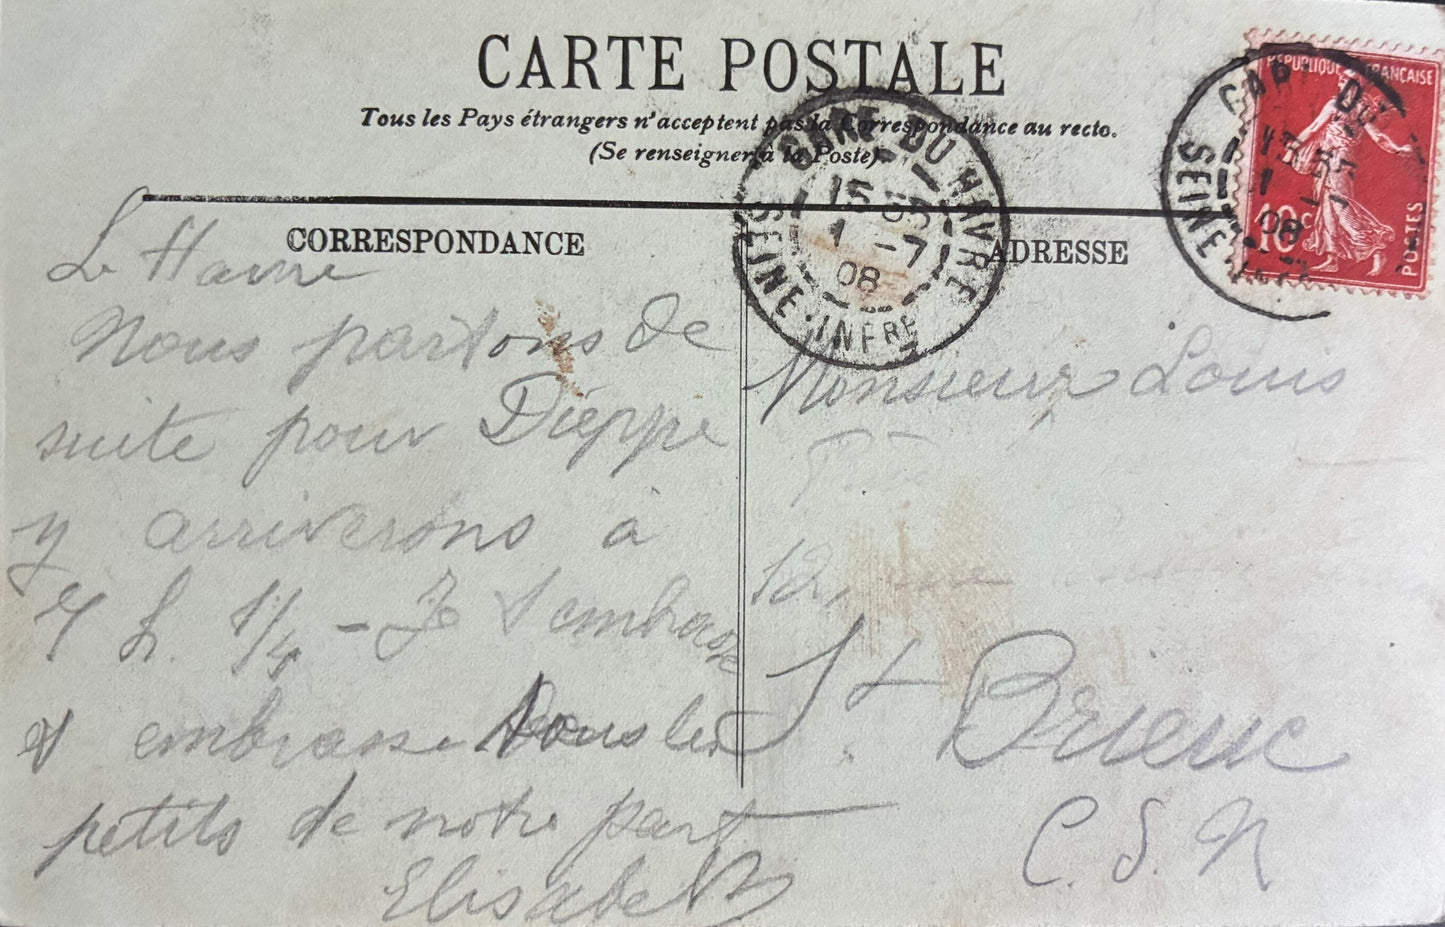 CARTE POSTALE
Tous les Pays étrangers n'acceptent pas la Correspondance au recto.
(Se renseigner à la Poste)
CORRESPONDANCE
Le Havre
Nous partons de
suite pour Dieppe
y arriverons à
7 h. 1/4 - Je t'embrasse
et embrasse tous les
petits de notre part
Elisabeth
ADRESSE
Monsieur Louis
12,
St Brieuc
C. d. N
GARE DU HAVRE
15 35
1 -7
08
SEINE-INFRE
REPUBLIQUE FRANÇAISE
10c
POSTES
GARE DU
15 35
1
08
SEINE-INFRE